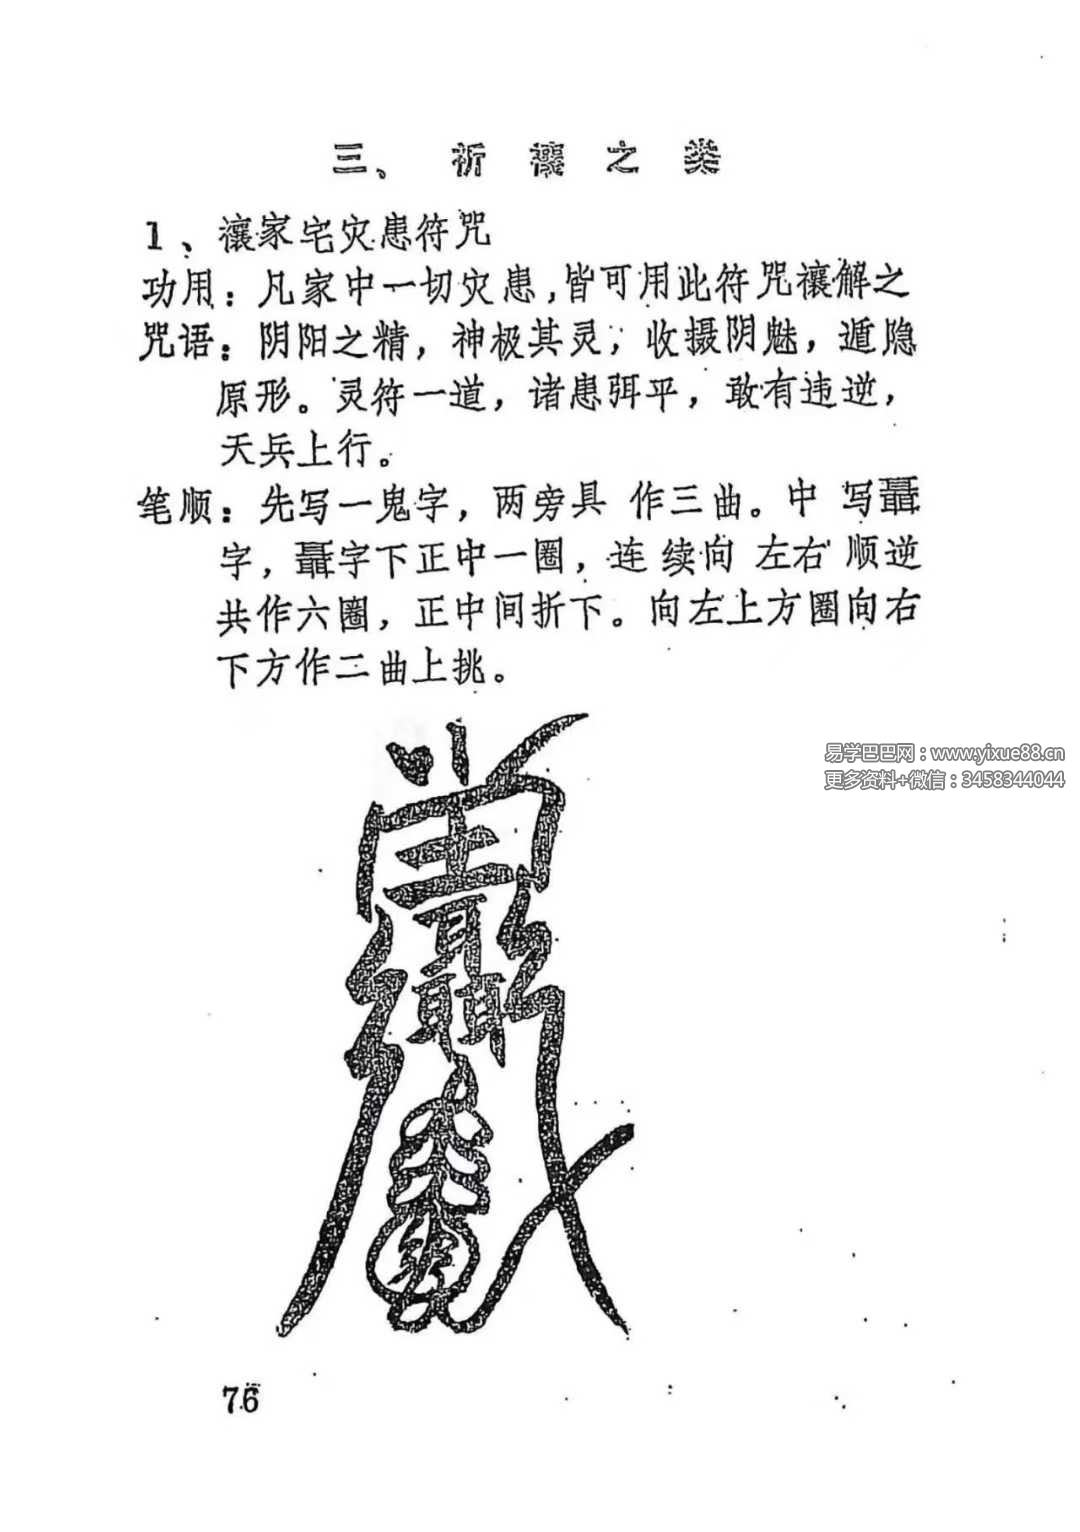 三、祈禳之类
1、禳家宅灾患符咒
功用：凡家中一切灾患，皆可用此符咒禳解之
咒语：阴阳之精，神极其灵；收摄阴魅，遁隐
原形。灵符一道，诸患弭平，敢有违逆，
天兵上行。
笔顺：先写一鬼字，两旁具作三曲。中写聻
字，聻字下正中一圈，连续向左右顺逆
共作六圈，正中间折下。向左上方圈向右
下方作二曲上挑。
易学巴巴网：www.yixue88.cn
更多资料+微信：3458344044
76